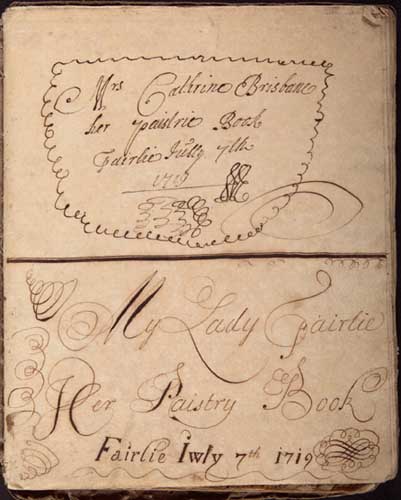 Mrs Cathrine Brisbane
her paistrie Book
Fairlie Jully 7th
My Lady Fairlie
Her Paistry Book
Fairlie Iwly 7th 1719